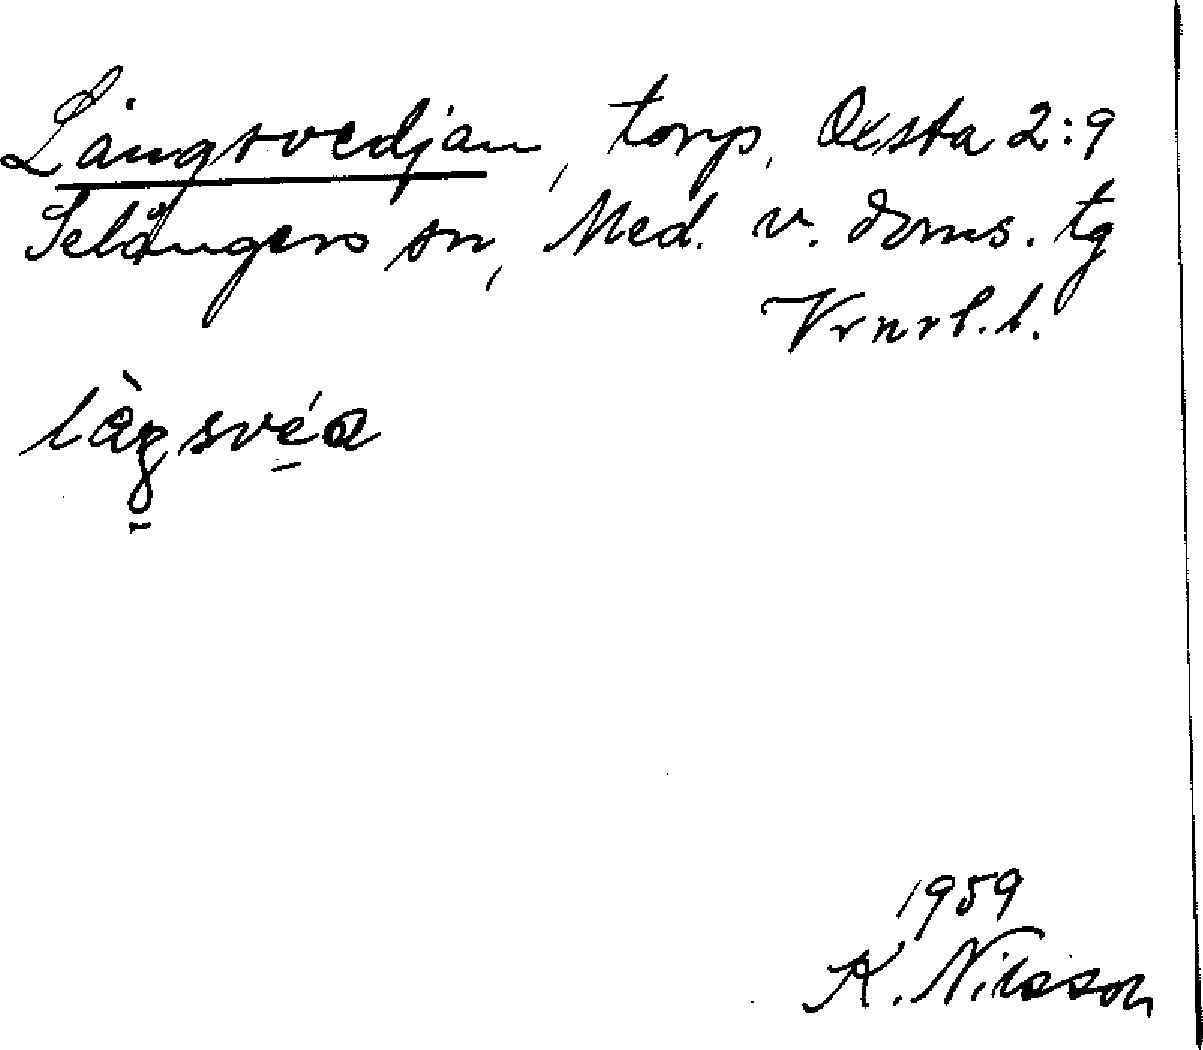 Långsvedjan, torp, Oxsta 2:9
Selångers sn, Med. v. doms. tg
Vrnrl.l.
1959
K. Nilsson